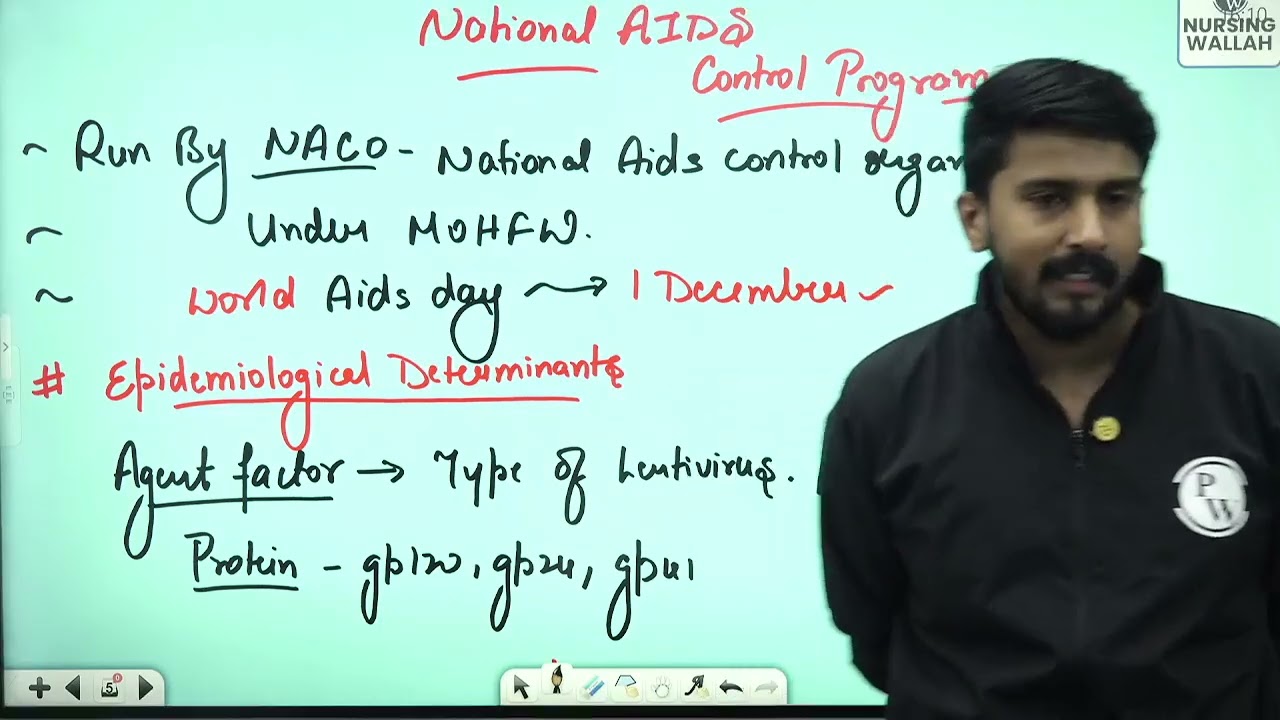 National AIDS
Control Program
~ Run By NACO - National Aids control organ
~ Under MOHFW.
~ World Aids day → 1 December ✓
# Epidemiological Determinants
Agent factor → Type of Lentivirus.
Protein - gp120, gp24, gp41
NURSING
WALLAH
PW
5